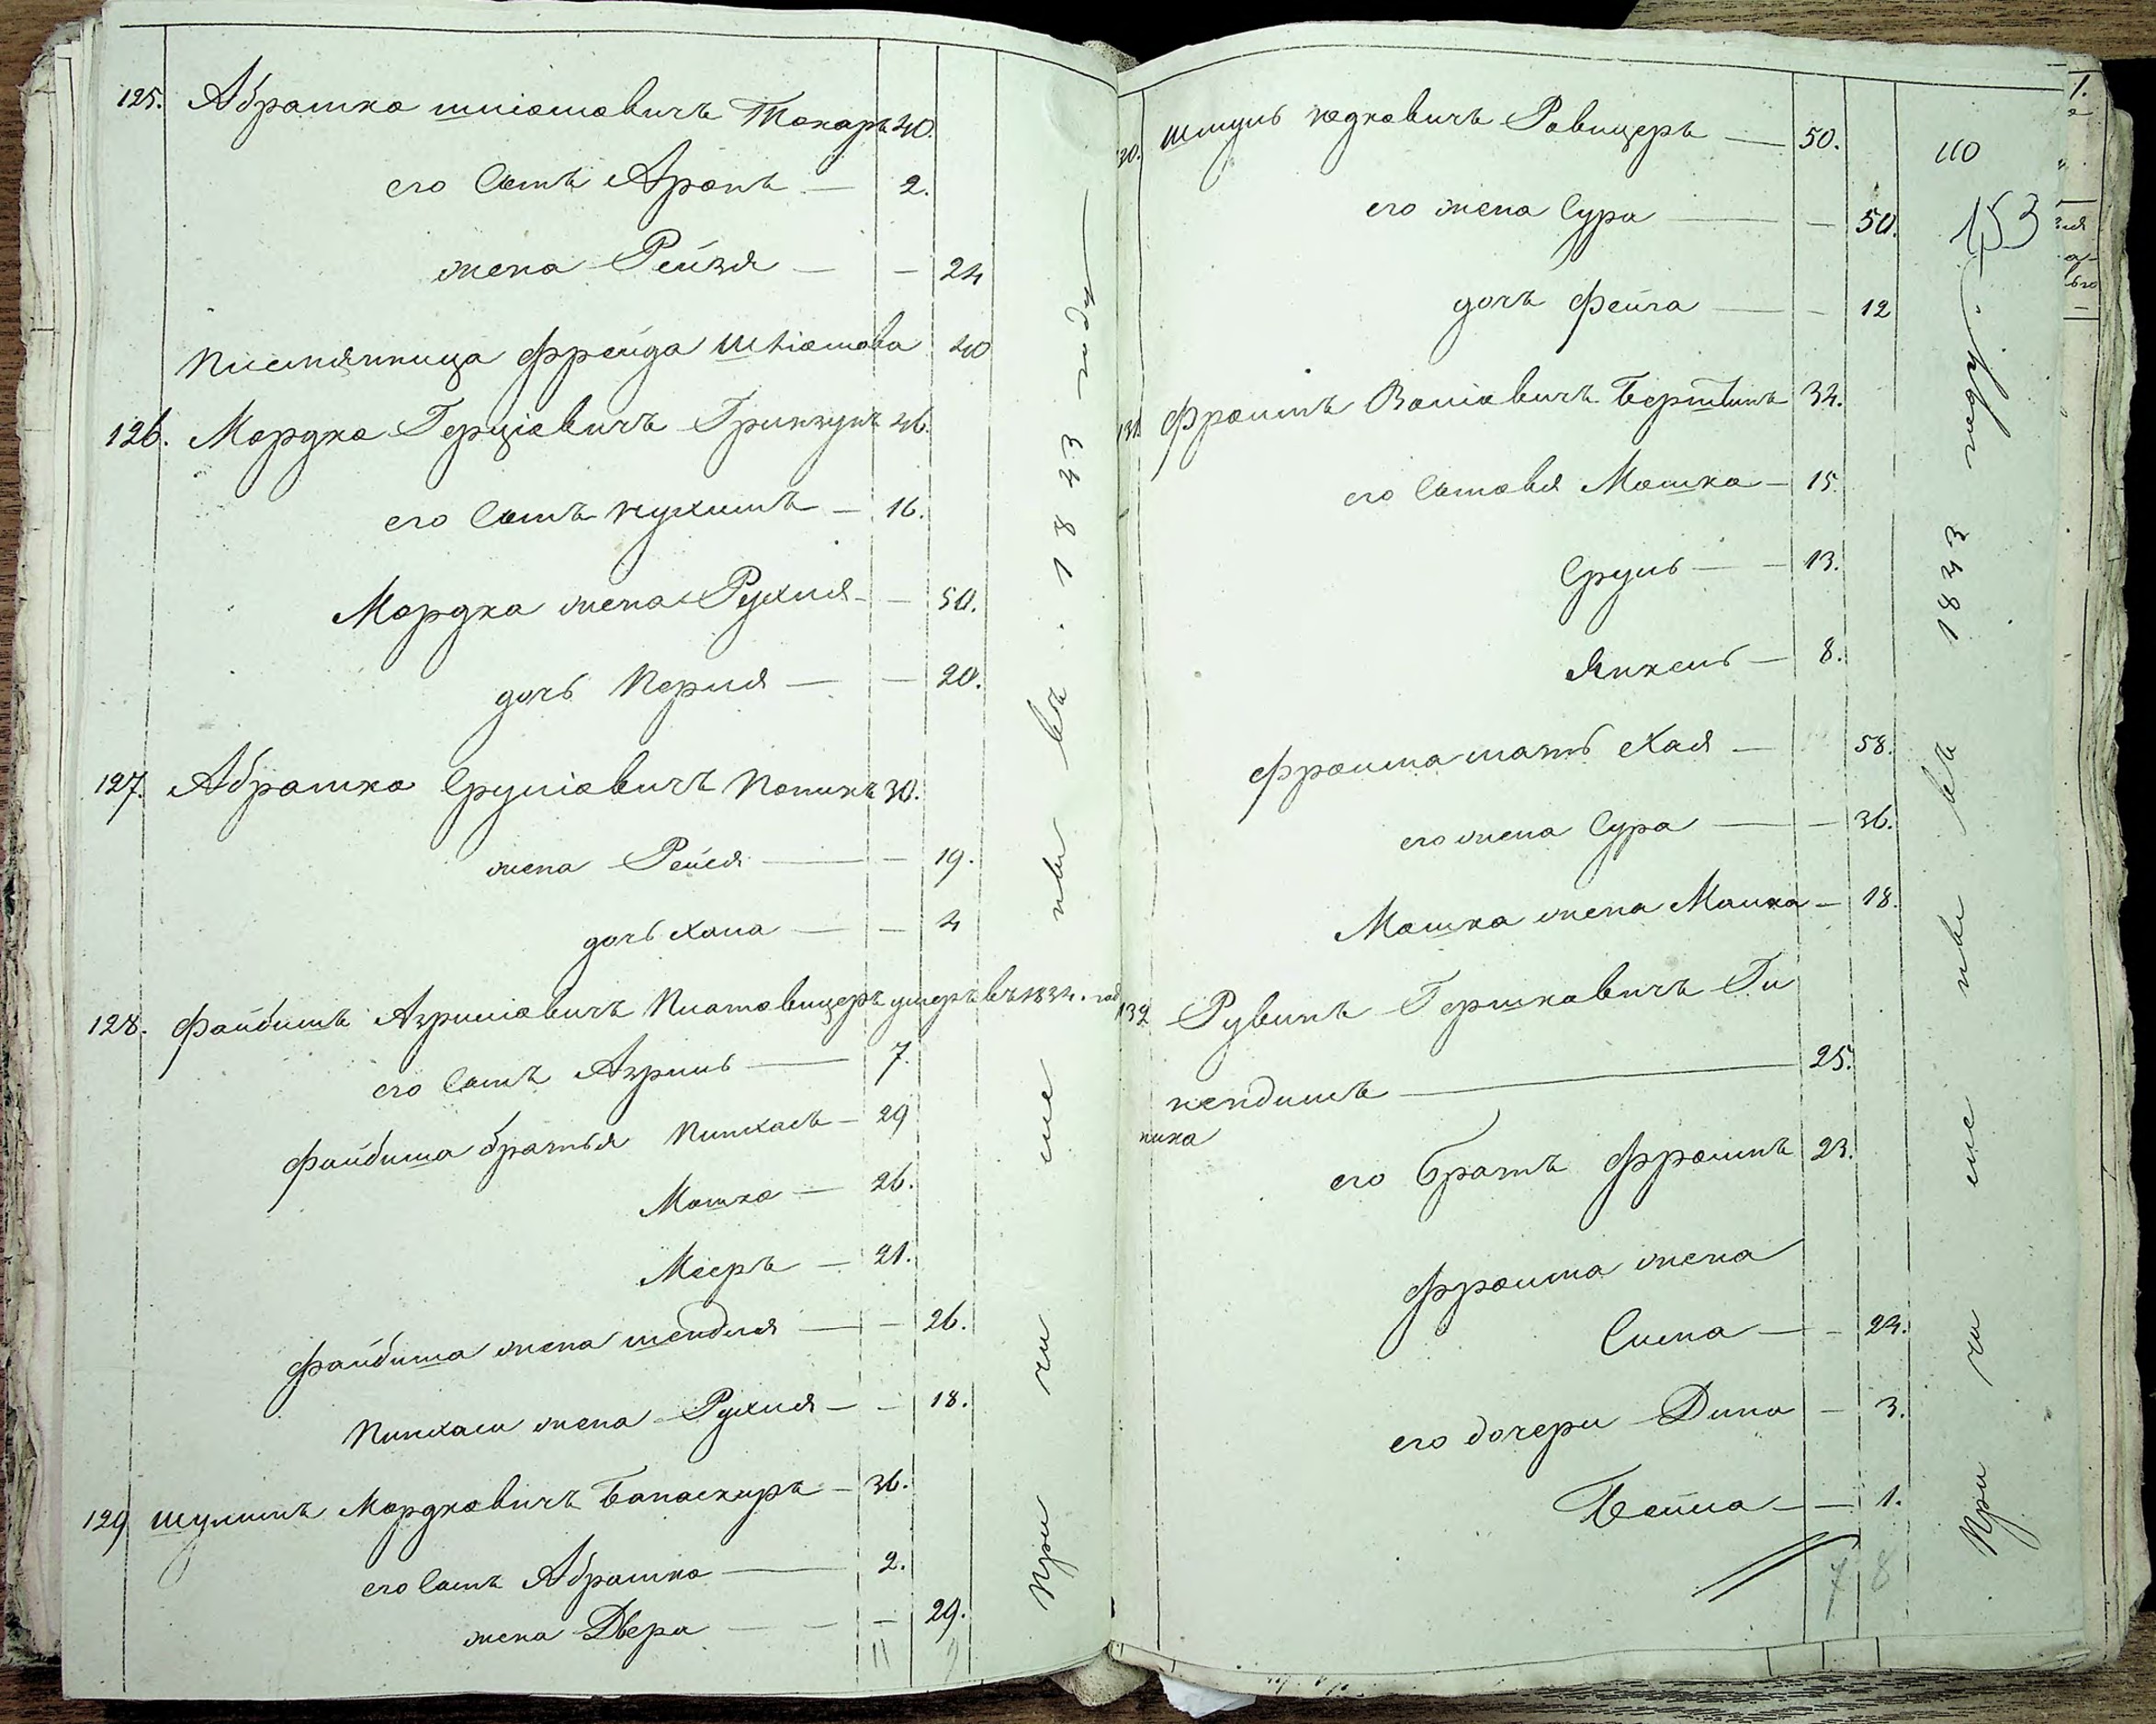 125. Абрамко Шліомовичъ Токарь 40.
его сынъ Аронъ — 2.
жена Рейзя — — 24
племянница Фрейда Шліомова 40
126. Мордко Герціовичъ Гринзунъ 46.
его сынъ Нухимъ — 16.
Мордка жена Рухля — — 50.
дочь Перля — — 20.
127. Абрамко Сруліовичъ Копикъ 30.
жена Рейзя — — 19.
дочь Хана — — 4
128. Файбишъ Азриліовичъ Клотовицеръ умеръ въ 1834. год
его сынъ Азриль — 7.
Файбиша братья Пинхасъ — 29
Мошко — 26.
Мееръ — 21.
Файбиша жена Шендля — — 26.
Пинхаса жена Рухля — — 18.
129 Шулимъ Мордковичъ Банаскиръ — 36.
его сынъ Абрамко — 2.
жена Двера — — 29.
11 9
При чи сле ны въ . . 1843 году
110
153
130. Шмуль Юдковичъ Ровицеръ — 50.
его жена Сура — — 50.
дочь Фейга — — 12
131 Фроимъ Воліовичъ Берштинъ 34.
его сыновья Мошко — 15.
Сруль — — 13.
Янкель — 8.
Фроима мать Хая — 58.
его жена Сура — — 36.
Мошка жена Малка — 18.
132 Рувинъ Гершковичъ Ги
нендинъ — 25.
ника
его братъ Фроимъ 23.
Фроима жена
Сима — — 24.
его дочери Дина — 3.
Бейла — — 1.
7 8
При чи сле ны въ 1843 году.